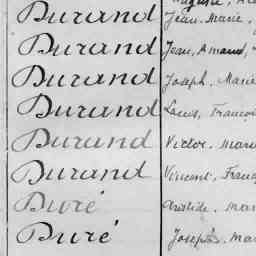 Auguste,
Durand Jean. Marie,
Durand Jean, Amand,
Durand Joseph. Marie
Durand Louis, Franço
Durand Victor. Mari
Durand Vincent, Franç
Duré Aristide. Mar
Duré Joseph. Mar